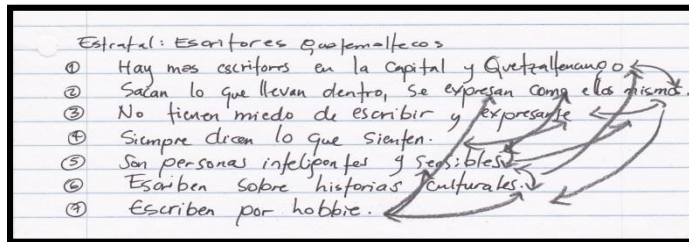 Estrafal: Escritores guatemaltecos
① Hay mas escritores en la Capital y Quetzaltenango
② Sacan lo que llevan dentro, se expresan como ellos mismos.
③ No tienen miedo de escribir y expresarte
④ Siempre dicen lo que sienten.
⑤ Son personas inteligentes y sensibles
⑥ Escriben sobre historias culturales.
⑦ Escriben por hobbie.